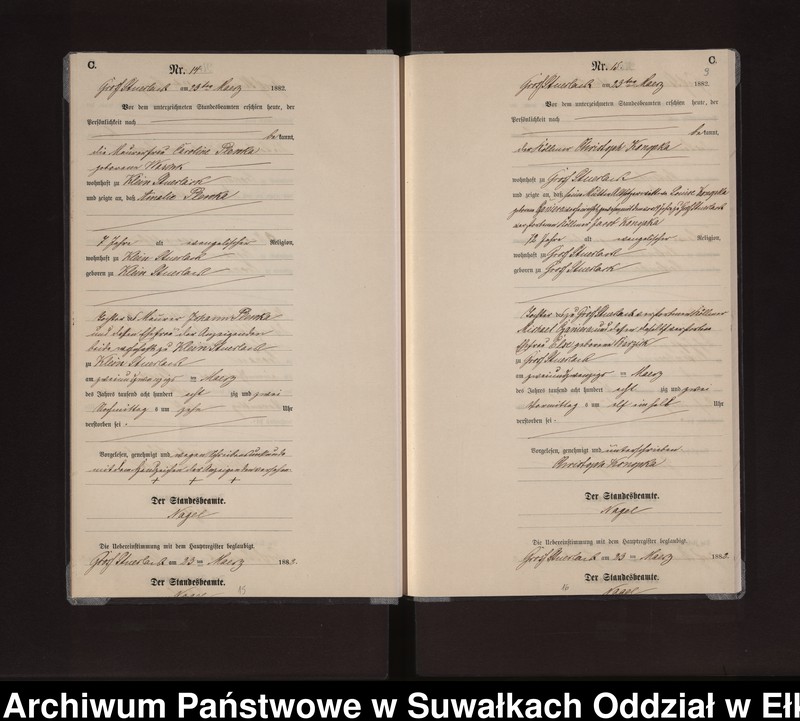 C.
Nr. 14
Groß Stuerlack am 23ten Maerz 1882.
Vor dem unterzeichneten Standesbeamten erschien heute, der
Persönlichkeit nach
bekannt,
die Maurerfrau Caroline
geborene
wohnhaft zu Klein Stuerlack
und zeigte an, daß Amalie
7 Jahre alt evangelischer Religion,
wohnhaft zu Klein Stuerlack
geboren zu Klein Stuerlack
Tochter des Maurer Johann
und dessen Ehefrau der Anzeigenden
beide wohnhaft zu Klein Stuerlack
zu Klein Stuerlack
am zweiundzwanzigsten Maerz
des Jahres tausend acht hundert achtzig und zwei
Vormittag s um zehn Uhr
verstorben sei.
Vorgelesen, genehmigt und wegen Schreibensunkunde
mit dem Handzeichen der Anzeigenden versehen
+ + +
Der Standesbeamte.
Nagel
Die Uebereinstimmung mit dem Hauptregister beglaubigt.
Groß Stuerlack am 23 ten Maerz 1882.
Der Standesbeamte.
Nagel
15
C.
9
Nr. 15
Groß Stuerlack am 23ten Maerz 1882.
Vor dem unterzeichneten Standesbeamten erschien heute, der
Persönlichkeit nach
bekannt,
der Köllmer Christoph Konopka
wohnhaft zu Groß Stuerlack
und zeigte an, daß seine Mutter Louise Konopka
geborene Kanina zu Groß Stuerlack
verstorbenen Köllmer Jacob Konopka
72 Jahre alt evangelischer Religion,
wohnhaft zu Groß Stuerlack
geboren zu Groß Stuerlack
Tochter des zu Groß Stuerlack verstorbenen Köllmer
Michael Kanina und dessen daselbst verstorbenen
Ehefrau geborenen
zu Groß Stuerlack
am zweiundzwanzigsten Maerz
des Jahres tausend acht hundert achtzig und zwei
Vormittag s um elf einhalb Uhr
verstorben sei.
Vorgelesen, genehmigt und unterschrieben
Christoph Konopka
Der Standesbeamte.
Nagel
Die Uebereinstimmung mit dem Hauptregister beglaubigt.
Groß Stuerlack am 23 ten Maerz 1882.
Der Standesbeamte.
Nagel
16
Archiwum Państwowe w Suwałkach Oddział w Ełk